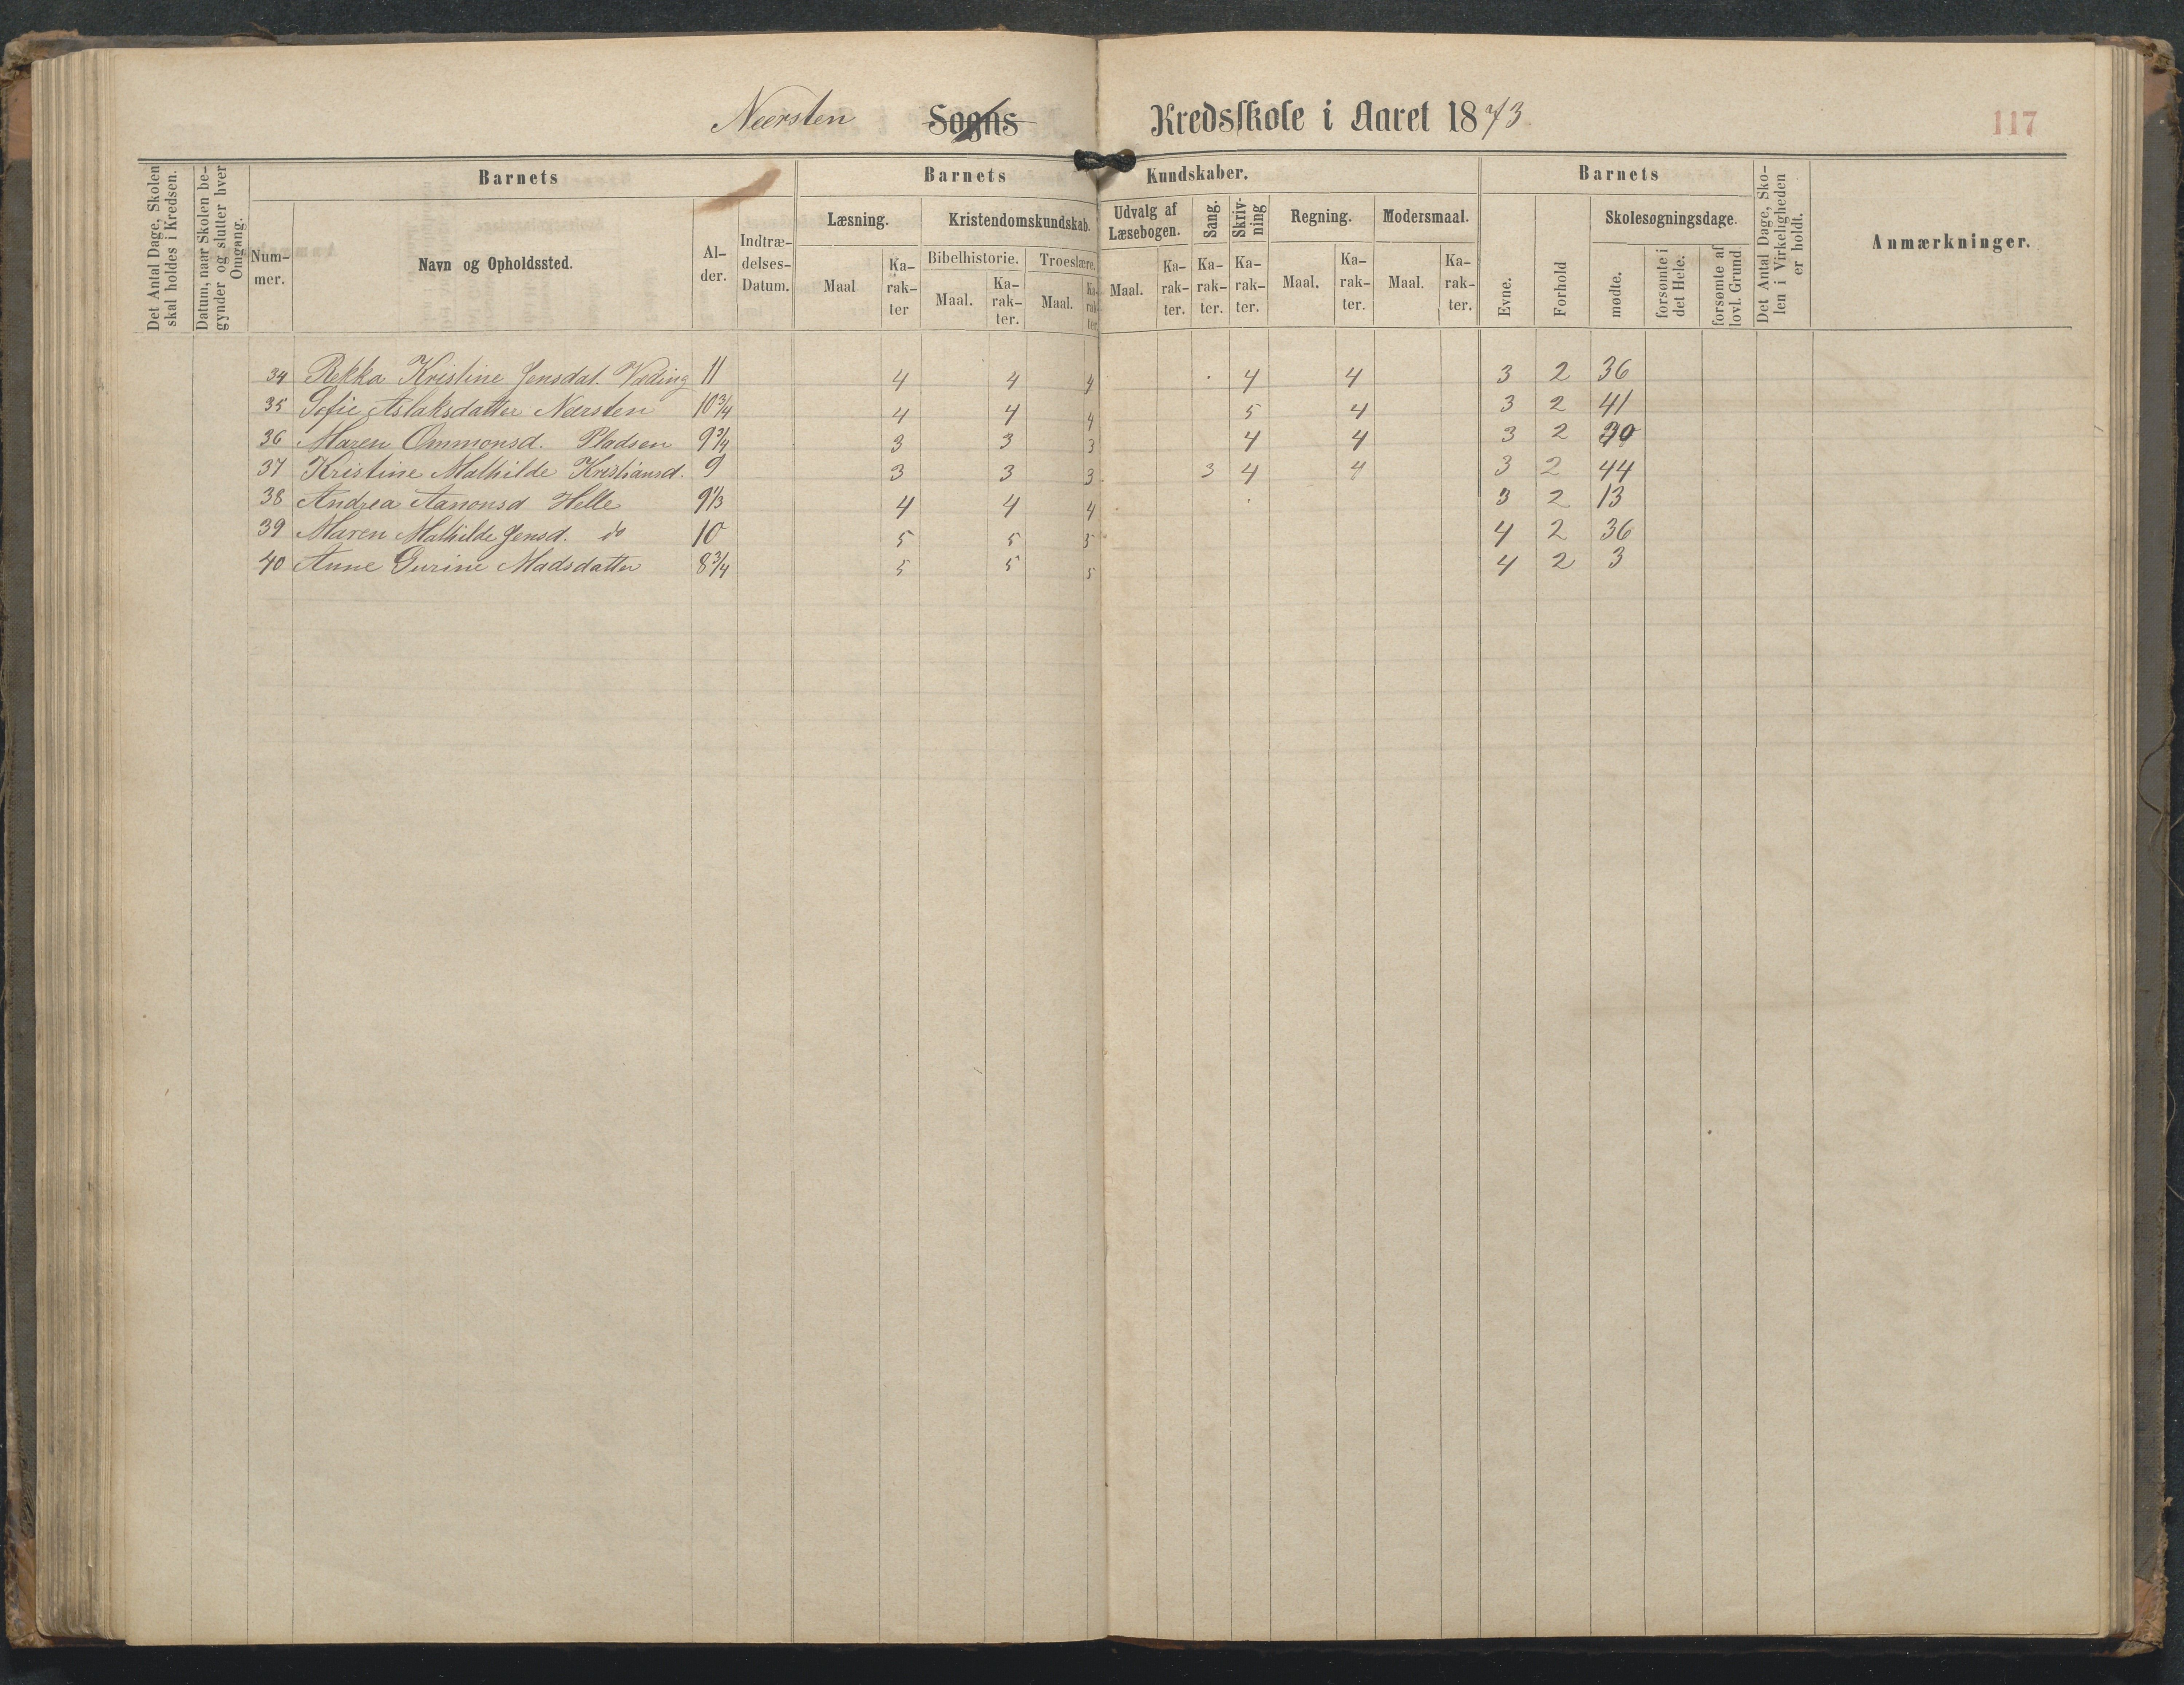 Næersten Sogns Kredsskole i Aaret 1873
117
Det Antal Dage, Skolen skal holdes i Kredsen.
Datum, naar Skolen be-gynder og slutter hver Omgang.
Barnets
Num-mer.
Navn og Opholdssted.
Al-der.
Indtræ-delses-Datum.
Barnets Kundskaber.
Læsning.
Maal
Ka-rak-ter
Kristendomskundskab.
Bibelhistorie.
Maal.
Ka-rak-ter.
Troeslære.
Maal.
Ka-rak-ter.
Udvalg af Læsebogen.
Maal.
Ka-rak-ter.
Sang.
Ka-rak-ter.
Skriv-ning
Ka-rak-ter.
Regning.
Maal.
Ka-rak-ter.
Modersmaal.
Maal.
Ka-rak-ter.
Barnets
Evne.
Forhold
Skolesøgningsdage.
mødte.
forsømte i det Hele.
forsømte af lovl. Grund
Det Antal Dage, Sko-len i Virkeligheden er holdt.
Anmærkninger.
34 Rekka Kristine Jensdat. 11 4 4 4 4 4 3 2 36
35 Sofie Aslaksdatter Næersten 10 3/4 4 4 4 5 4 3 2 41
36 Maren Ommonsd. Pladsen 9 3/4 3 3 3 4 4 3 2
37 Kristine Mathilde Kristiansd. 9 3 3 3 3 4 4 3 2 44
38 Andrea Aanonsd Helle 9 1/3 4 4 4 3 2 13
39 Maren Mathilde Jensd. do 10 5 5 5 4 2 36
40 Anne Gurine Madsdatter 8 3/4 5 5 5 4 2 3